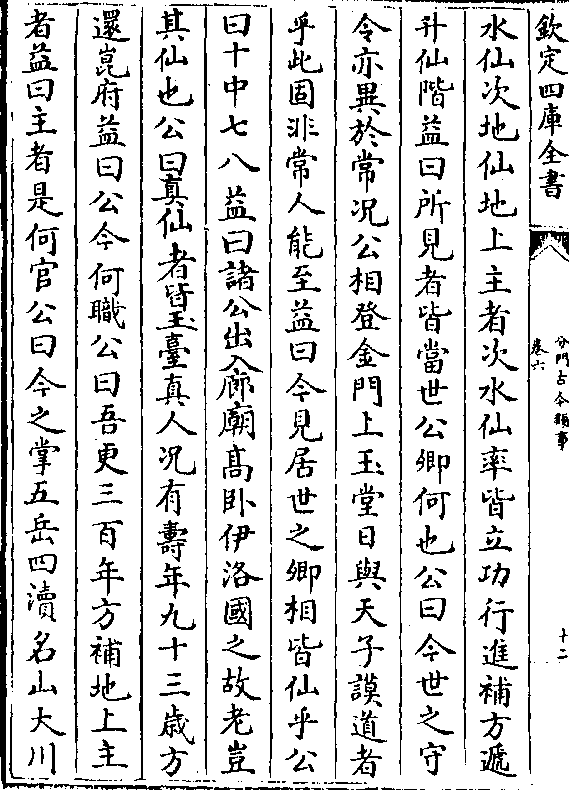 欽定四庫全書
分門古今類事
卷六
十二
水仙次地仙地上主者次水仙率皆立功行進補方遞
升仙階益曰所見者皆當世公卿何也公曰今世之守
令亦異於常况公相登金門上玉堂日與天子謨道者
乎此固非常人能至益曰今見居世之卿相皆仙乎公
曰十中七八益曰諸公出入廊廟髙卧伊洛國之故老豈
其仙也公曰真仙者皆玉臺真人况有壽年九十三歳方
還崑府益曰公今何職公曰吾更三百年方補地上主
者益曰主者是何官公曰今之掌五岳四瀆名山大川